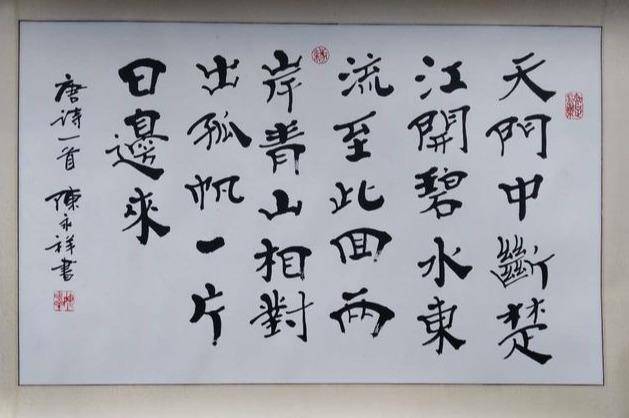 天門中斷楚
江開碧水東
流至此回兩
岸青山相對
出孤帆一片
日邊來
唐诗一首 陳永祥書